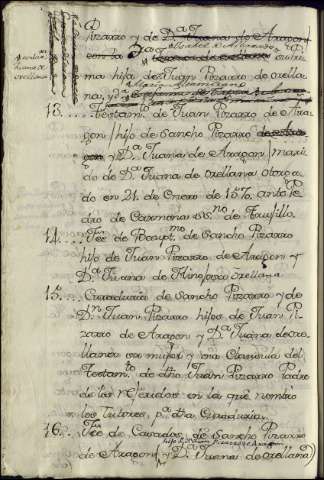 Pizarro y de D.ª Juana de Aragon
con la D.ª Isabel de
ma hija de Juan Pizarro de orella
na, y D.ª
13.... Testam.to de Juan Pizarro de Ara
gon, hijo de Sancho Pizarro de Ara
gon y D.ª Juana de Aragon, mari
do de D.ª Juana de orellana otorga
do en 21 de Enero de 1570. ante Pe
dro de Carmona es.no de Truxillo.
14.... Fee de Baupt.mo de Sancho Pizarro
hijo de Juan Pizarro de Aragon y
D.ª Juana de Hinojosa orellana
15.... Curaduria de Sancho Pizarro y de
D.n Juan Pizarro hijos de Juan Pi
zarro de Aragon y D.ª Juana de ore
llana su mujer y una Clausula del
Testam.to de dho Juan Pizarro Padre
de los referidos en la que nombro
los Tutores, p.ª dha Curaduria.
16... Fee de Casados de Sancho Pizarro
de Aragon y D.ª Juana de orellana